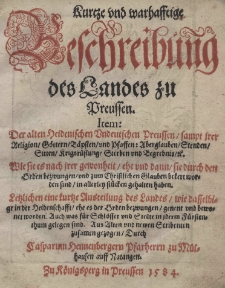 Kurtze vnd warhafftige
Beschreibung
des Landes zu
Preussen.
Item:
Der alten Heidenischen Vndeutschen Preussen / sampt jrer
Religion / Göttern / Bäpsten / vnd Pfaffen: Aberglauben / Stenden /
Sitten / Kriegsrüstung / Sterben vnd Begrebnis / ꝛc.
Wie sie es nach jrer gewonheit / ehe vnd dann / sie durch den
Orden bezwungen / vnd zum Christlichen Glauben bekert wor-
den sind / in allerley stücken gehalten haben.
Letzlichen eine kurtze Austeilung des Landes / wie dasselbi-
ge in der Heidenschafft / ehe es der Orden bezwungen / genent vnd bewo-
net worden. Auch was für Schlösser vnd Stedte in jderm Fürsten-
thum gelegen sind. Aus Alten vnd newen Scribenten
zusamen gezogen / Durch
Casparum Hennenbergern Pfarherrn zu Mül-
hausen auff Natangen.
Zu Königsperg in Preussen 1584.